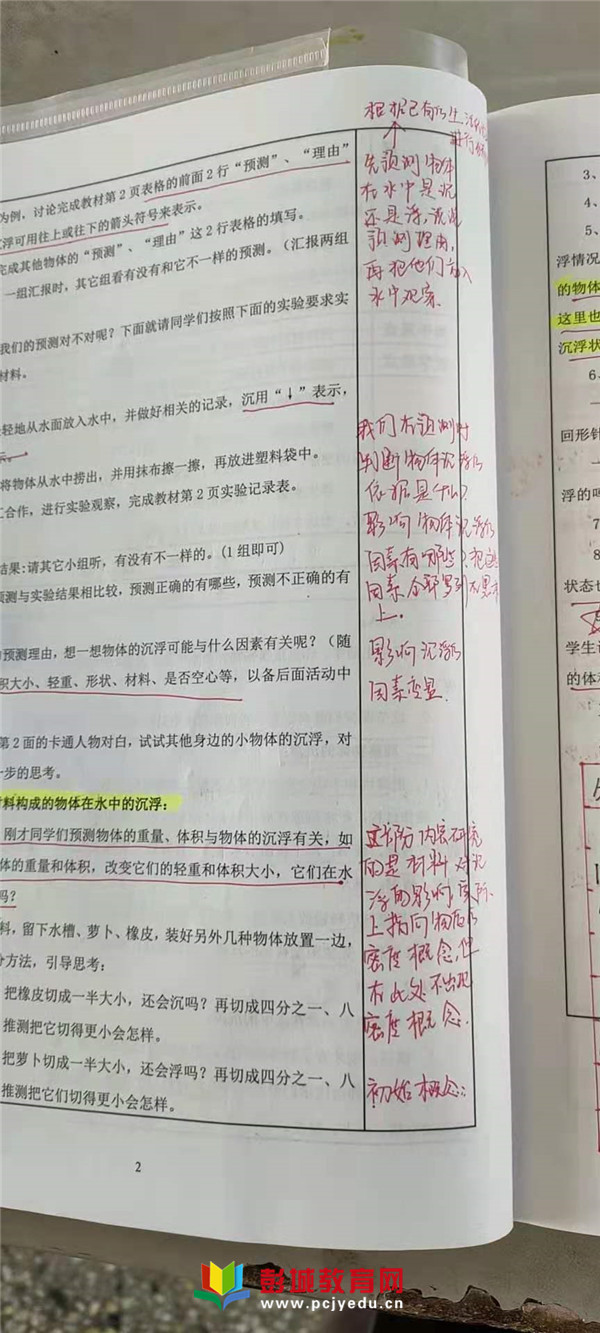 为例，讨论完成教材第2页表格的前面2行“预测”、“理由”
沉浮可用往上或往下的箭头符号来表示。
完成其他物体的“预测”、“理由”这2行表格的填写。
一组汇报时，其它组看有没有和它不一样的预测。（汇报两组
我们的预测对不对呢？下面就请同学们按照下面的实验要求实
材料。
轻地从水面放入水中，并做好相关的记录，沉用“↓”表示，
将物体从水中捞出，并用抹布擦一擦，再放进塑料袋中。
合作，进行实验观察，完成教材第2页实验记录表。
结果:请其它小组听，有没有不一样的。（1组即可）
预测与实验结果相比较，预测正确的有哪些，预测不正确的有
预测理由，想一想物体的沉浮可能与什么因素有关呢？（随
积大小、轻重、形状、材料、是否空心等，以备后面活动中
第2面的卡通人物对白，试试其他身边的小物体的沉浮，对
一步的思考。
材料构成的物体在水中的沉浮：
刚才同学们预测物体的重量、体积与物体的沉浮有关，如
体的重量和体积，改变它们的轻重和体积大小，它们在水
吗？
料，留下水槽、萝卜、橡皮，装好另外几种物体放置一边，
分方法，引导思考：
把橡皮切成一半大小，还会沉吗？再切成四分之一、八
推测把它切得更小会怎样。
把萝卜切成一半大小，还会浮吗？再切成四分之一、八
推测把它们切得更小会怎样。
2
根据已有的生活
进行
先预测物体
在水中是沉
还是浮，说说
预测理由，
再把他们放入
水中观察。
我们在预测时
判断物体沉浮的
依据是什么？
影响物体沉浮的
因素有哪些？把这些
因素全部罗列在黑板
上。
影响沉浮的
因素变量
这部分内容研究
的是材料对沉
浮的影响，实际
上指向物质的
密度概念，但
在此处不出现
密度概念.
初始概念：
3、
4、
5、
浮情况
的物体
这里也
沉浮状
6、
回形针
浮的吗
7
8
状态也
学生
的体积
彭城教育网
www.pcjyedu.cn